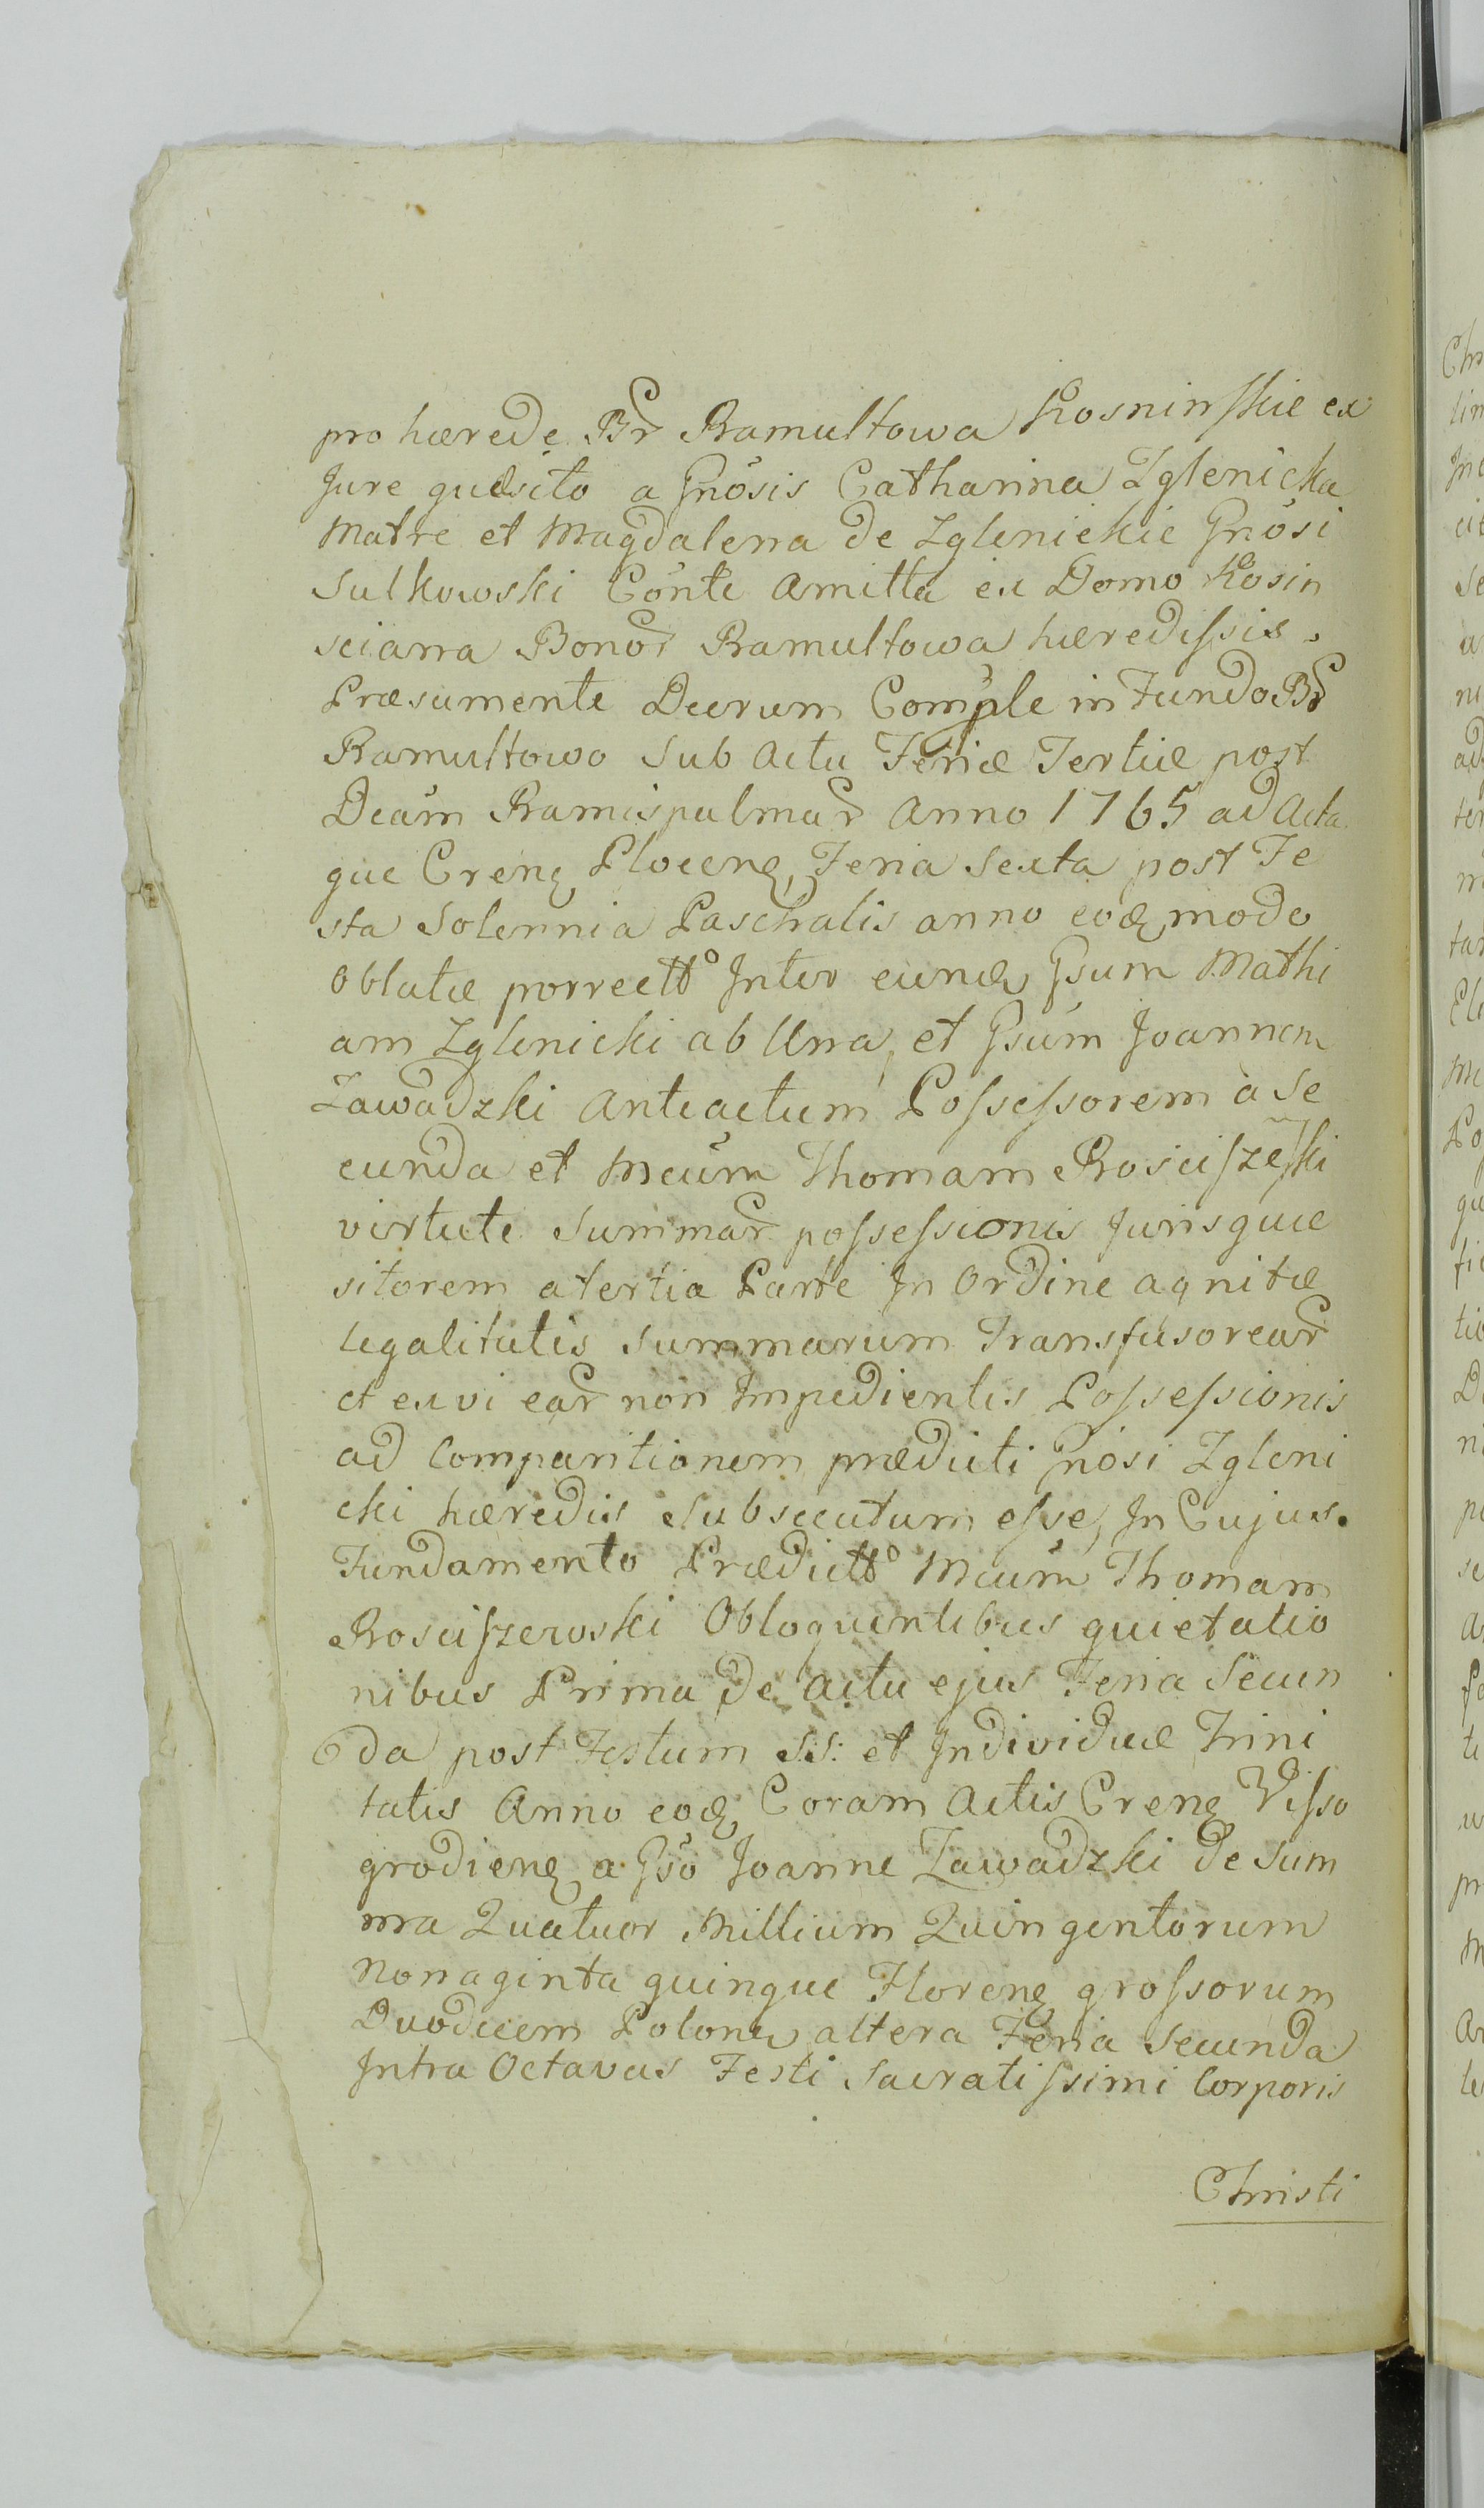 pro hærede Br Ramultowa Kosninskie ex
Jure quæsito a Gnosis Catharina Zglenicka
Matre et Magdalena de Zglenickie Gnosi
Sulkowski Conte Amitta ex Domo Kosin
sciana Bonor Ramultowa hæredissis.
Præsumente Decrum Comple in Fundo Br
Ramultowo Sub Actu Feriæ Tertiæ post
Dcam Ramispalmar Anno 1765 ad Acta
que Crenę Plocenę, Feria Sexta post Fe
sta Solennia Paschalis anno eodę modo
Oblatæ porrectto Inter eundę Gsum Mathi
am Zglenicki ab Una, et Gsum Joannem
Zawadzki Anteactum Possessorem à Se
cunda et Mcum Thomam Roscisze͠ski
virtute Summar possessionis Jurisquæ
sitorem a tertia Parte In Ordine agnitæ
legalitatis Summarum Transfusorear
et ex vi ear non Impedientis Possessionis
ad Comparitionem prædicti Gnosi Zgleni
cki hæredis Subsecutum esse, In Cujus.
Fundamento Prædictto Mcum Thomam
Rosciszewski Obloquentibus quietatio
nibus Prima de actu ejus Feria Secun
da post Festum S.S: et Individuæ Trini
tatis Anno eodę Coram Actis Crenę Visso
grodienę a Gso Joanne Zawadzki de Sum
ma Quatuor Millium Quingentorum
Nonaginta quinque Florenę grossorum
Duodecem Polon altera Feria Secunda
Intra Octavas Festi Sacratissimi Corporis
Christi